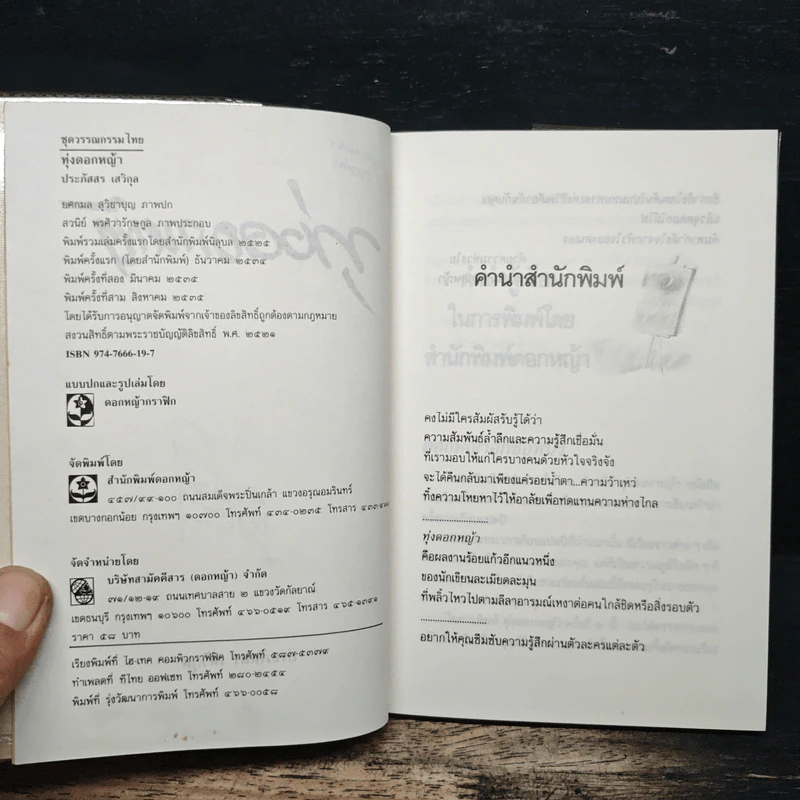 ชุดวรรณกรรมไทย
ทุ่งดอกหญ้า
ประภัสสร เสวิกุล
ยศกมล สุวิชาบุญ ภาพปก
สวนีย์ พรศิวารักษกูล ภาพประกอบ
พิมพ์รวมเล่มครั้งแรกโดยสำนักพิมพ์นิลุบล ๒๕๒๕
พิมพ์ครั้งแรก (โดยสำนักพิมพ์) ธันวาคม ๒๕๓๔
พิมพ์ครั้งที่สอง มีนาคม ๒๕๓๕
พิมพ์ครั้งที่สาม สิงหาคม ๒๕๓๕
โดยได้รับการอนุญาตจัดพิมพ์จากเจ้าของลิขสิทธิ์ถูกต้องตามกฎหมาย
สงวนสิทธิ์ตามพระราชบัญญัติลิขสิทธิ์ พ.ศ. ๒๕๒๑
ISBN 974-7666-19-7
แบบปกและรูปเล่มโดย
ดอกหญ้ากราฟิก
จัดพิมพ์โดย
สำนักพิมพ์ดอกหญ้า
๔๕๗/๙๙-๑๐๐ ถนนสมเด็จพระปิ่นเกล้า แขวงอรุณอมรินทร์
เขตบางกอกน้อย กรุงเทพฯ ๑๐๗๐๐ โทรศัพท์ ๔๓๔-๐๒๓๕ โทรสาร
จัดจำหน่ายโดย
บริษัทสามัคคีสาร (ดอกหญ้า) จำกัด
๗๑/๑๒-๑๙ ถนนเทศบาลสาย ๒ แขวงวัดกัลยาณ์
เขตธนบุรี กรุงเทพฯ ๑๐๖๐๐ โทรศัพท์ ๔๖๖-๐๕๑๙ โทรสาร ๔๖๕-๑๓๙๑
ราคา ๕๘ บาท
เรียงพิมพ์ที่ ไฮ-เทค คอมพิวกราฟฟิค โทรศัพท์ ๕๘๗-๕๓๗๙
ทำเพลตที่ ทีไทย ออฟเซท โทรศัพท์ ๒๘๐-๒๔๕๔
พิมพ์ที่ รุ่งวัฒนาการพิมพ์ โทรศัพท์ ๔๖๖-๐๐๕๘
คำนำสำนักพิมพ์
คงไม่มีใครสัมผัสรับรู้ได้ว่า
ความสัมพันธ์ล้ำลึกและความรู้สึกเชื่อมั่น
ที่เรามอบให้แก่ใครบางคนด้วยหัวใจจริงจัง
จะได้คืนกลับมาเพียงแค่รอยน้ำตา...ความว้าเหว่
ทิ้งความโหยหาไว้ให้อาลัยเพื่อทดแทนความห่างไกล
............................
ทุ่งดอกหญ้า
คือผลงานร้อยแก้วอีกแนวหนึ่ง
ของนักเขียนละเมียดละมุน
ที่พลิ้วไหวไปตามลีลาอารมณ์เหงาต่อคนใกล้ชิดหรือสิ่งรอบตัว
............................
อยากให้คุณซึมซับความรู้สึกผ่านตัวละครแต่ละตัว